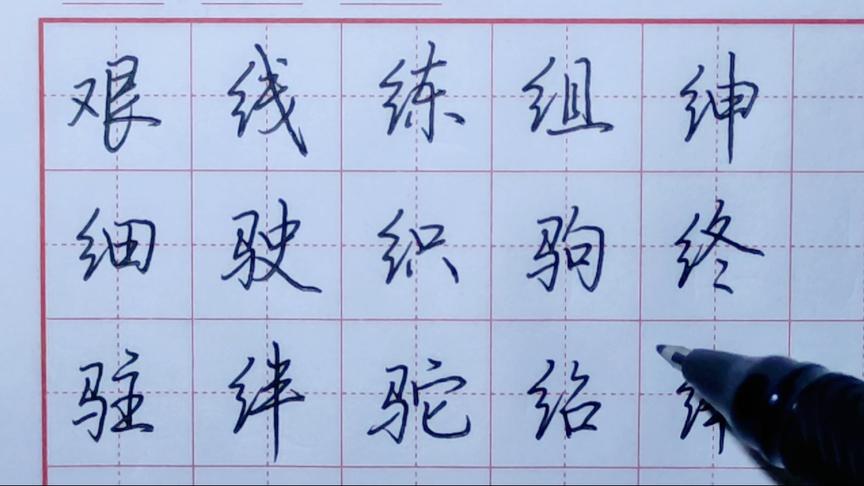 艰线练组绅
细驶织驹终
驻绊驼绐